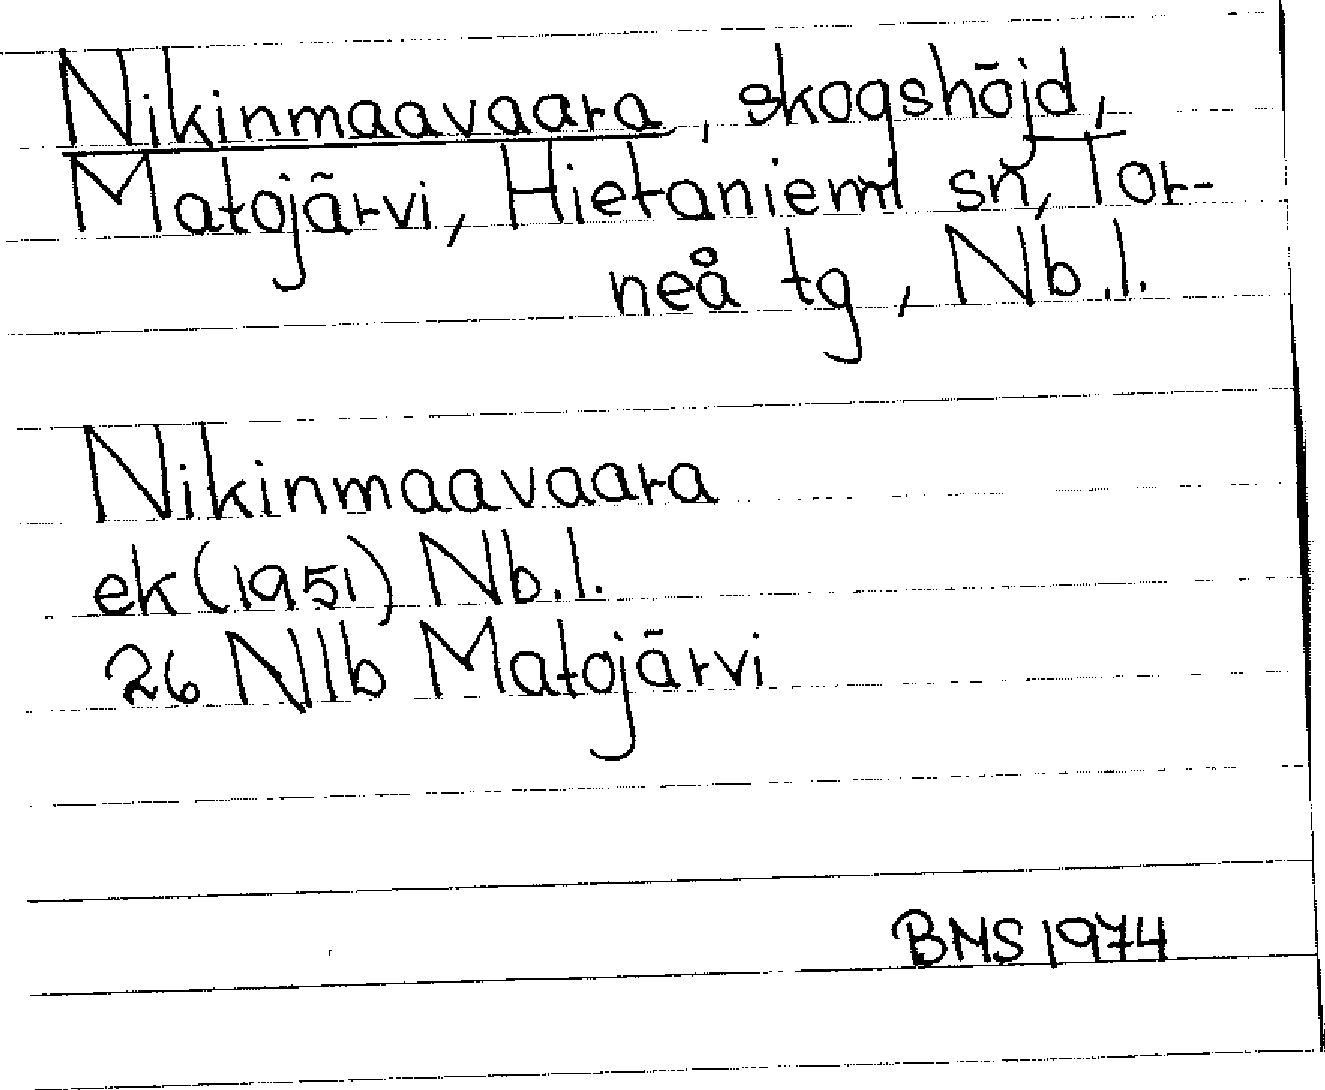 Nikinmaavaara, skogshöjd,
Matojärvi, Hietaniemi sn, Tor-
neå tg, Nb.l.
Nikinmaavaara
ek (1951) Nb.l.
26 Nlb Matojärvi
BMS 1974